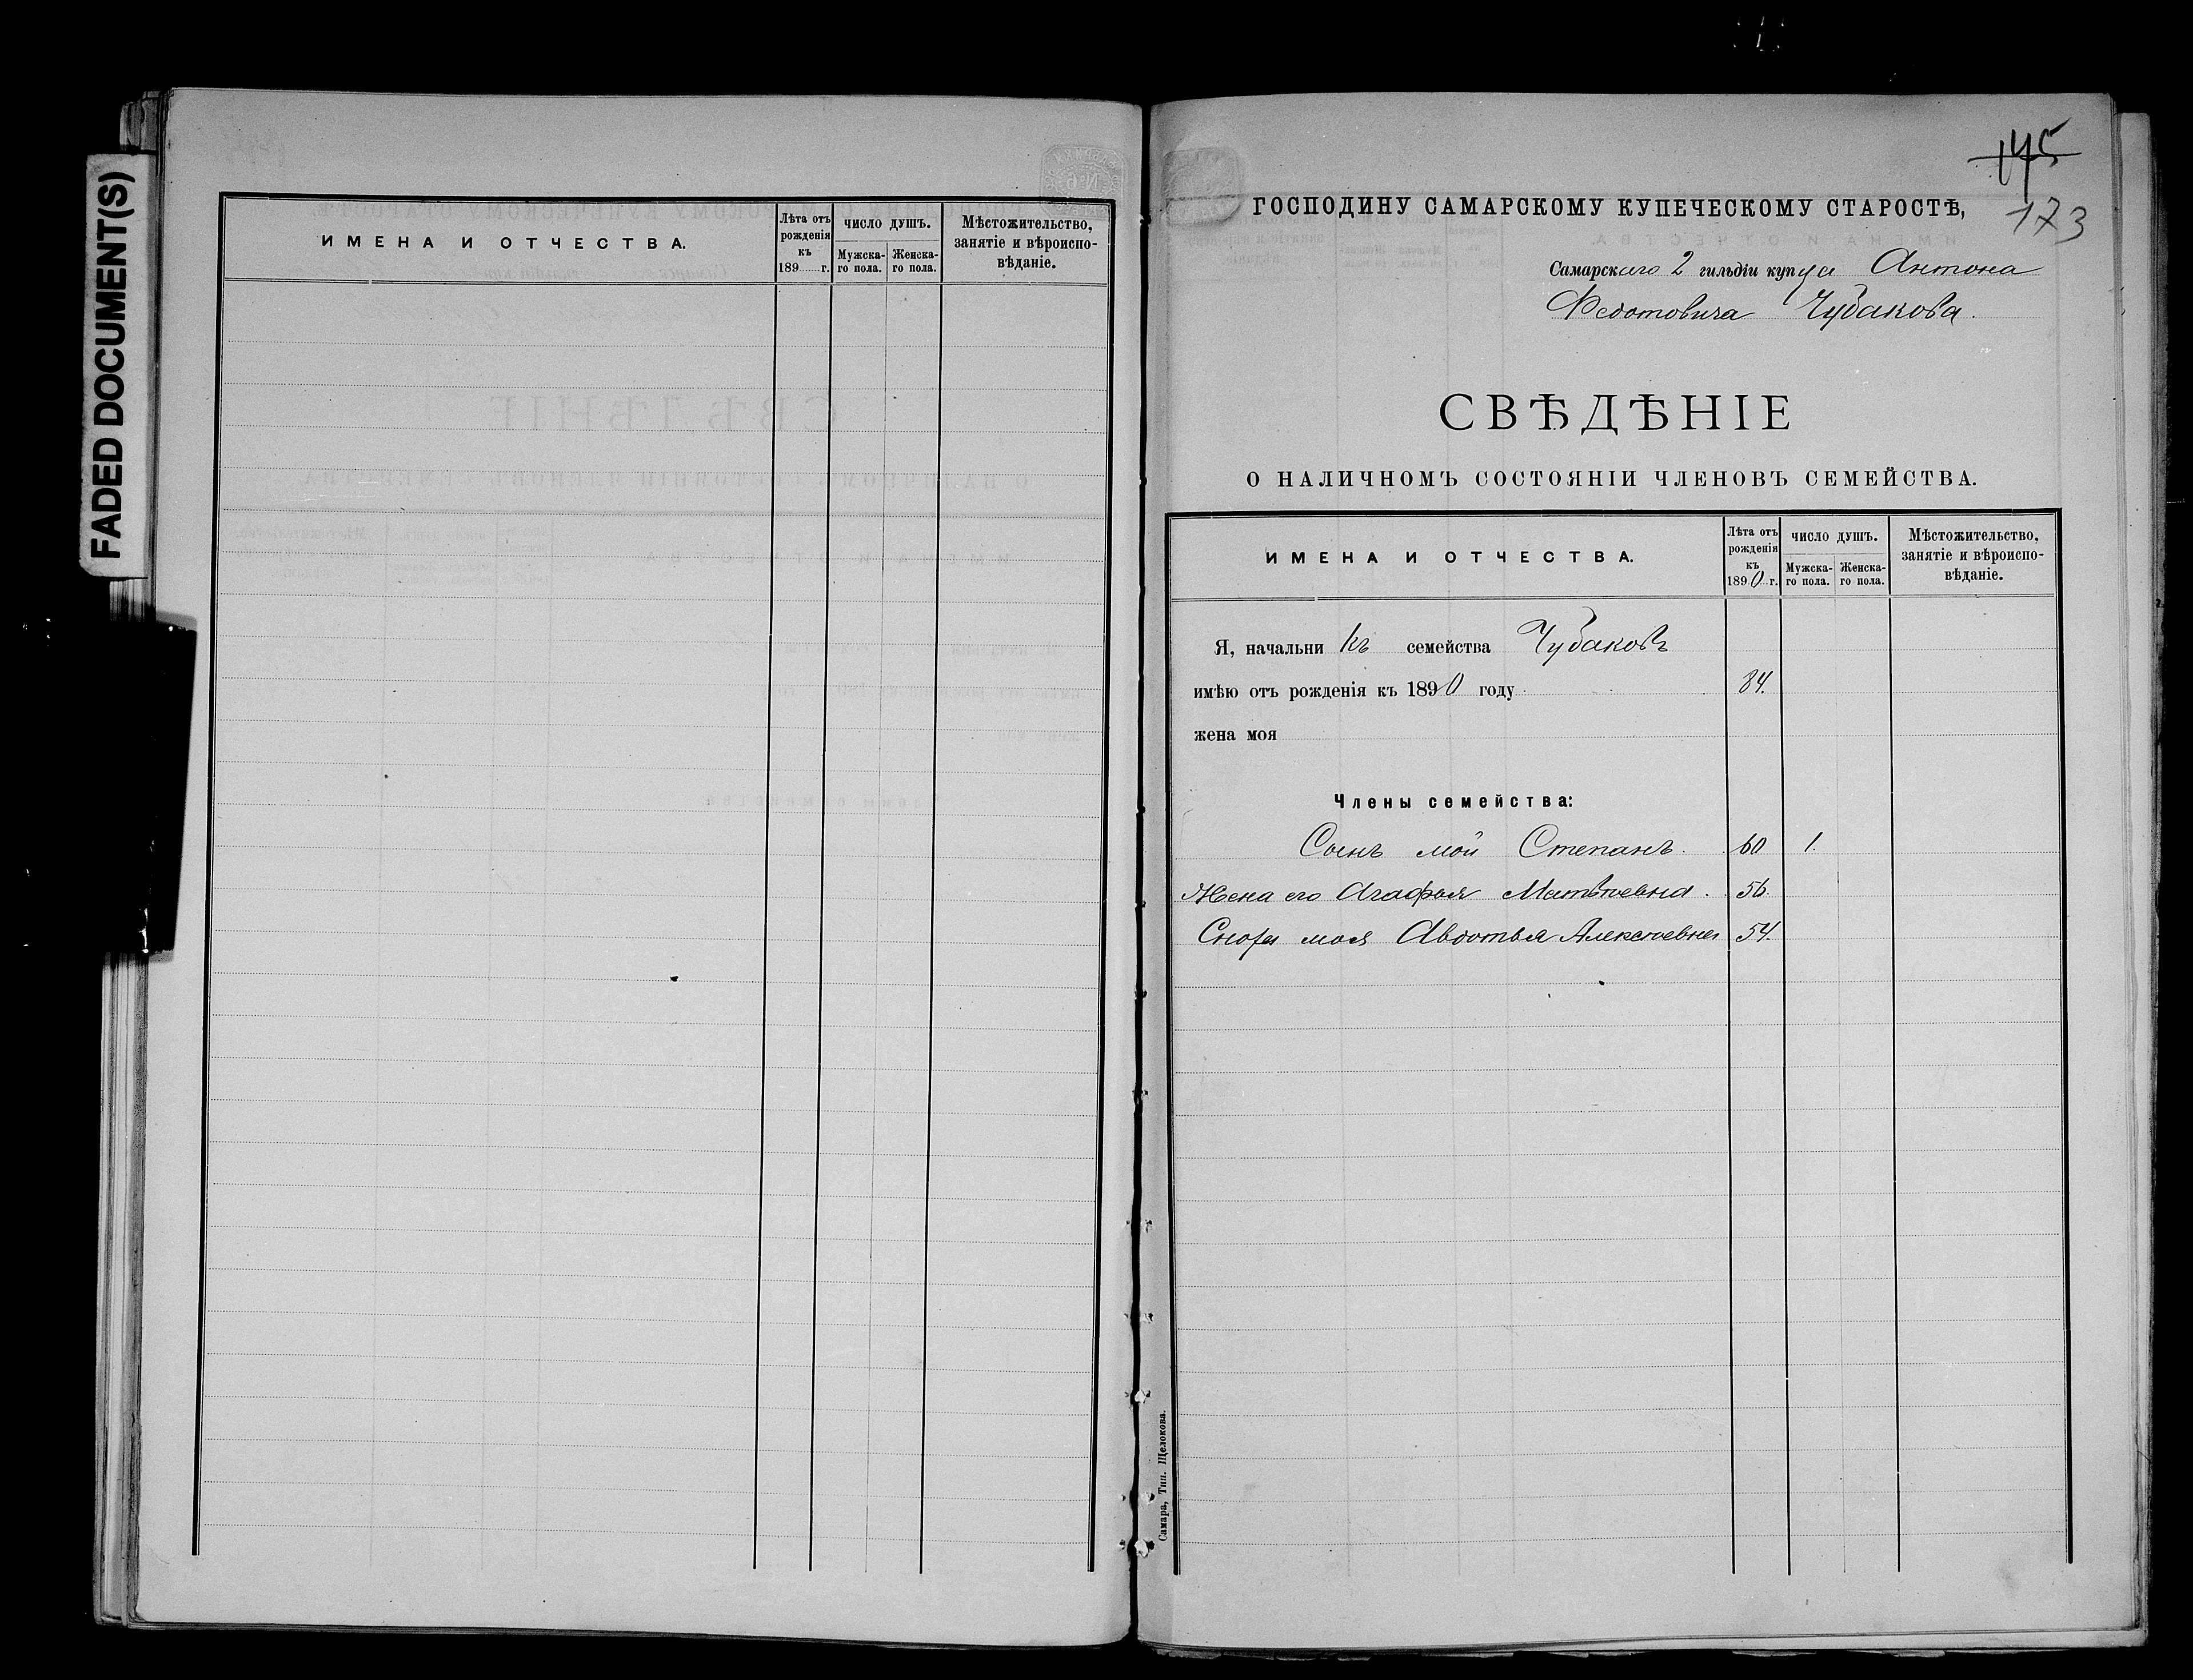 FADED DOCUMENT(S)
ИМЕНА И ОТЧЕСТВА.
Лѣта отъ рожденія къ 189 г.
ЧИСЛО ДУШЪ.
Мужска-го пола.
Женска-го пола.
Мѣстожительство, занятіе и вѣроиспо-вѣданіе.
175
173
ГОСПОДИНУ САМАРСКОМУ КУПЕЧЕСКОМУ СТАРОСТѢ,
Самарскаго 2 гильдіи купца Антона
Федотовича Чубакова.
СВѢДѢНІЕ
О НАЛИЧНОМЪ СОСТОЯНІИ ЧЛЕНОВЪ СЕМЕЙСТВА.
ИМЕНА И ОТЧЕСТВА.
Лѣта отъ рожденія къ 1890 г.
ЧИСЛО ДУШЪ.
Мужска-го пола.
Женска-го пола.
Мѣстожительство, занятіе и вѣроиспо-вѣданіе.
Я, начальникъ семейства Чубаковъ
имѣю отъ рожденія къ 1890 году 84.
жена моя
Члены семейства:
Сынъ мой Степанъ. 60 1.
Жена его Агафья Матвѣевна. 56.
Сноха моя Авдотья Алексѣевна 54.
Самара, Тип. Щелокова.